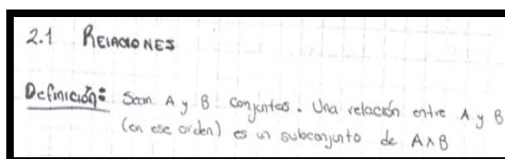 2.1 RElACIONES
Definición: Sean A y B conjuntos. Una relación entre A y B
(en ese orden) es un subconjunto de A×B